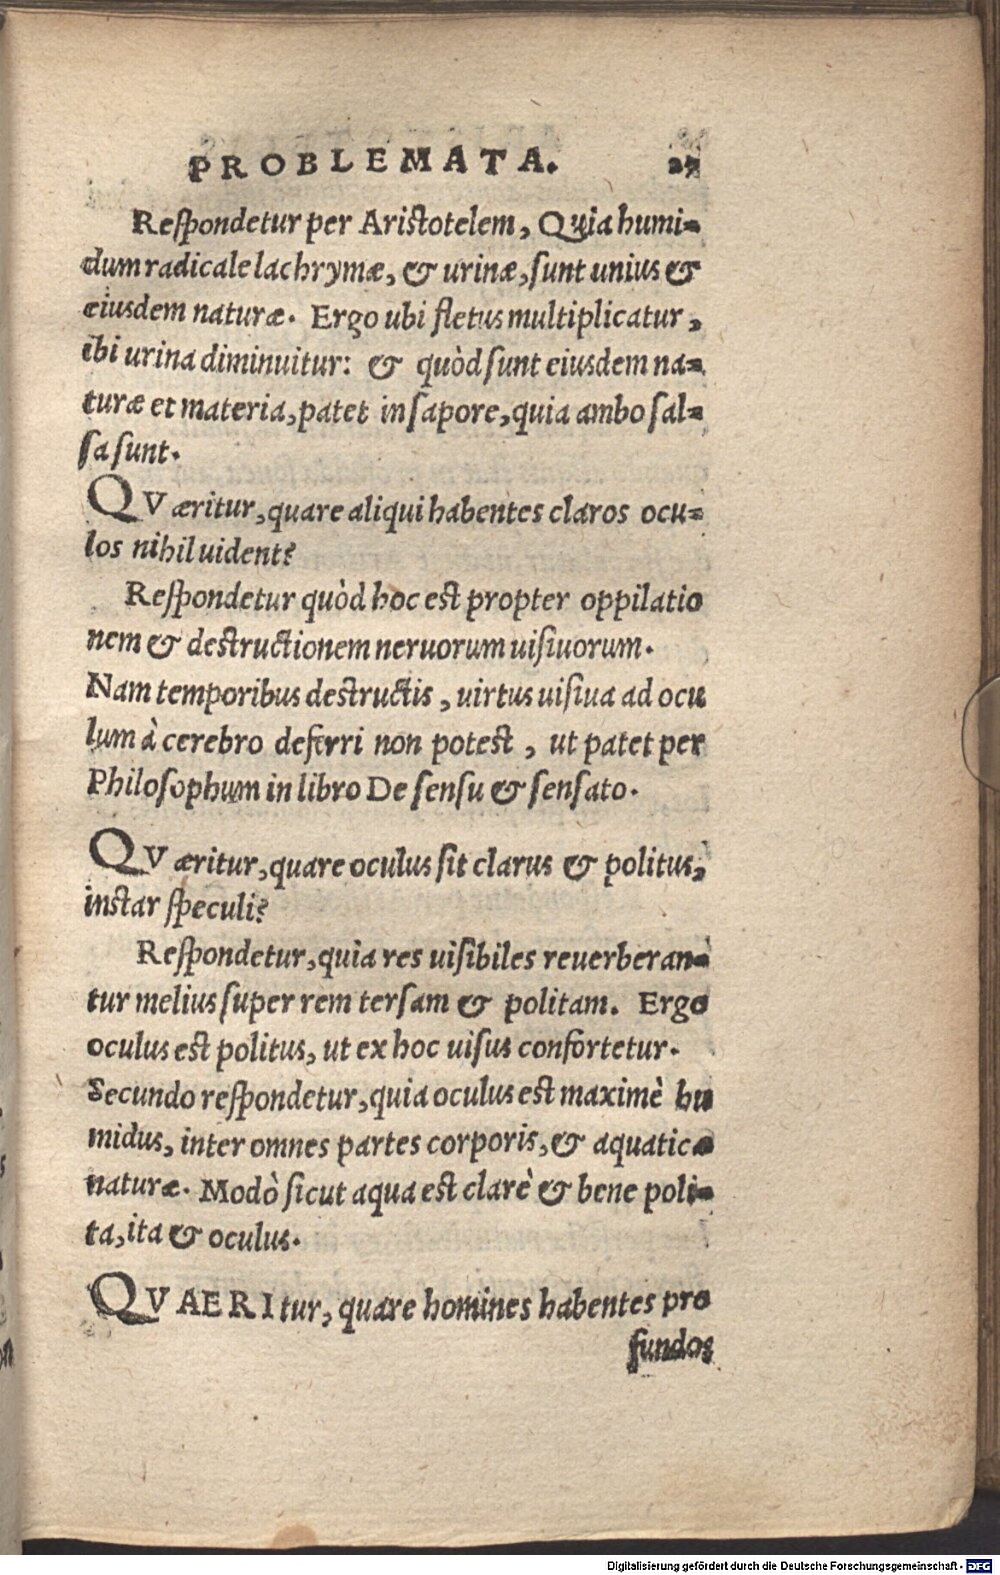 PROBLEMATA. 27
Respondetur per Aristotelem, Quia humi-
dum radicale lachrymæ, & urinæ, sunt unius &
eiusdem naturæ. Ergo ubi fletus multiplicatur,
ibi urina diminuitur: & quòd sunt eiusdem na-
turæ et materia, patet in sapore, quia ambo sal-
sa sunt.
QVæritur, quare aliqui habentes claros ocu-
los nihil uident?
Respondetur quòd hoc est propter oppilatio
nem & destructionem neruorum uisiuorum.
Nam temporibus destructis, uirtus uisiua ad ocu
lum à cerebro deferri non potest, ut patet per
Philosophum in libro De sensu & sensato.
QVæritur, quare oculus sit clarus & politus,
instar speculi?
Respondetur, quia res uisibiles reuerberan-
tur melius super rem tersam & politam. Ergo
oculus est politus, ut ex hoc uisus confortetur.
Secundo respondetur, quia oculus est maximè hu
midus, inter omnes partes corporis, & aquaticæ
naturæ. Modò sicut aqua est clarè & bene poli-
ta, ita & oculus.
QVAERItur, quare homines habentes pro
fundos
Digitalisierung gefördert durch die Deutsche Forschungsgemeinschaft - DFG